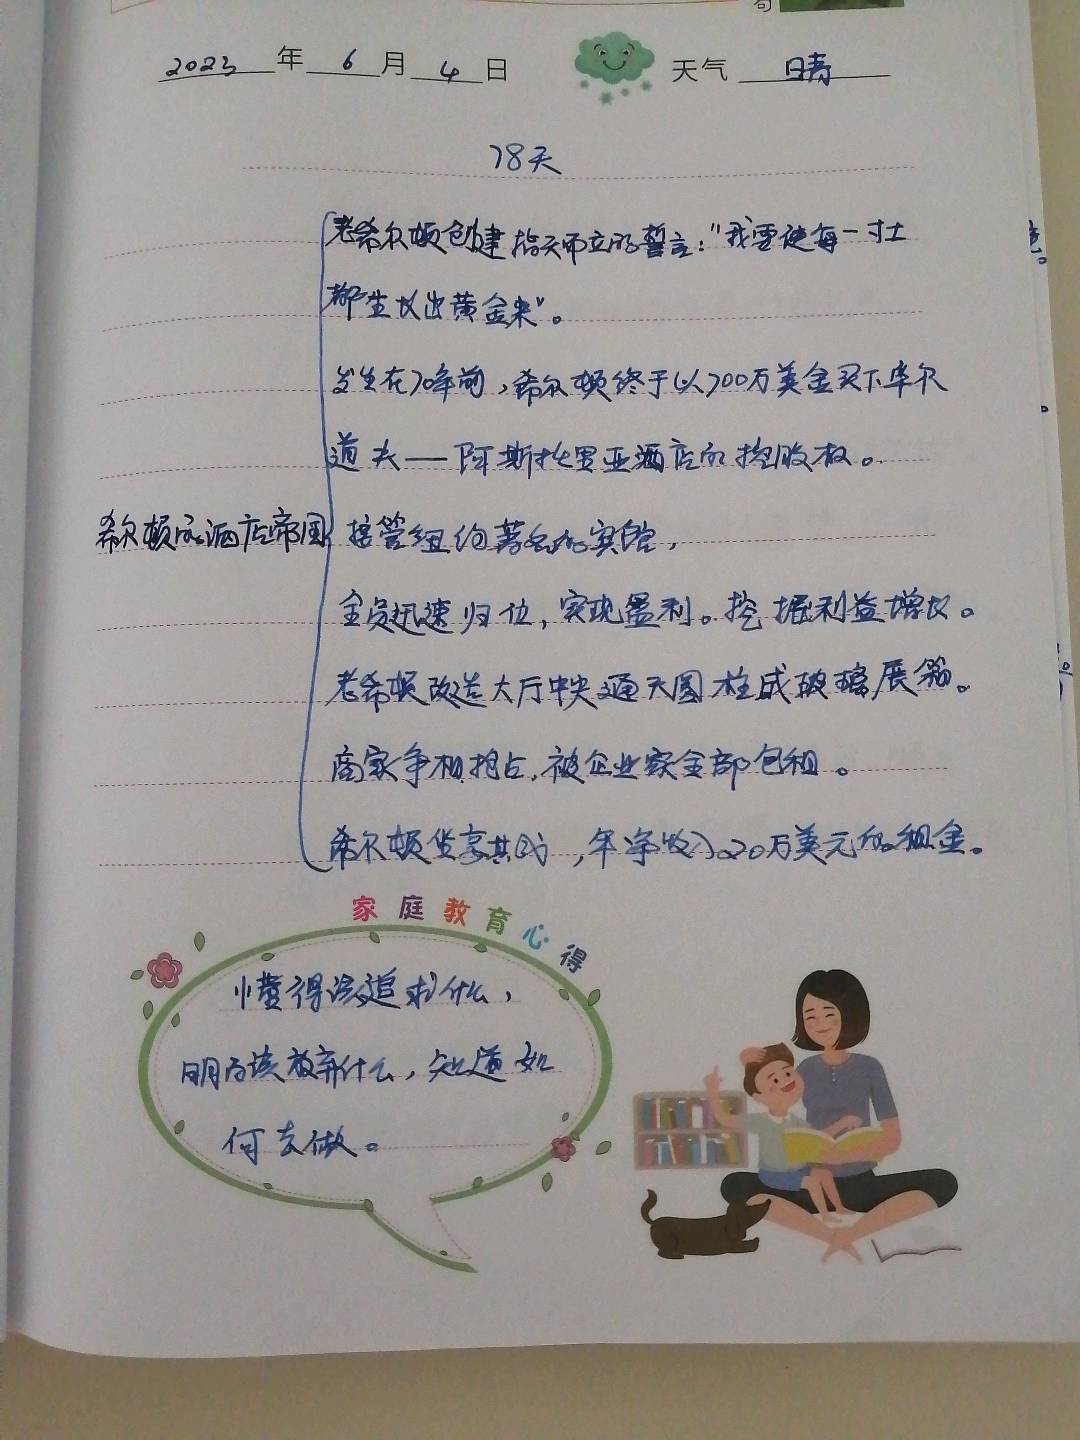 句
2023年6月4日 天气 晴
78天
老希尔顿创建 指天而立的誓言:"我要使每一寸土
都生长出黄金来"。
发生在70年前,希尔顿终于以700万美金买下华尔
道夫——阿斯托里亚酒店的控股权。
希尔顿的酒店帝国 接管纽约著名的宾馆,
全员迅速归位,实现盈利。挖掘利益增长。
老希顿改造大厅中央通天圆柱成玻璃展箱。
商家争相抢占,被企业家全部包租。
希尔顿坐享其成,年净收入20万美元的租金。
家庭教育心得
懂得该追求什么,
明白该放弃什么,知道如
何去做。